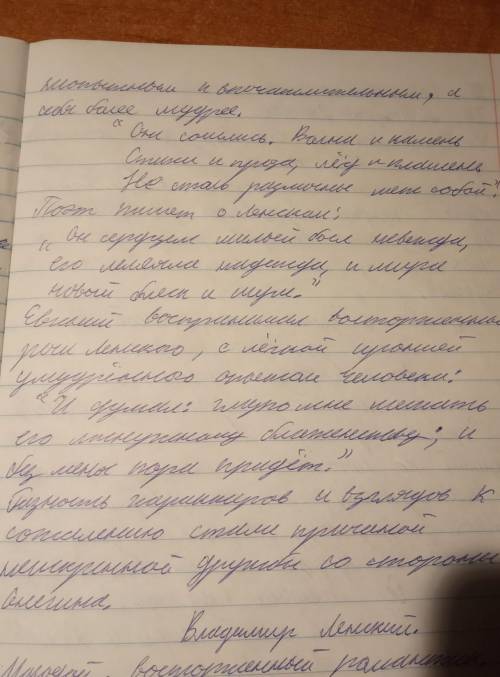 неопытным и впечатлительным, а
себя более мудрее.
"Они сошлись. Волна и камень
Стихи и проза, лёд и пламень
Не столь различны меж собой."
Поэт пишет о Ленском:
"Он сердцем милый был невежда,
его лелеяла надежда, и мира
новый блеск и шум."
Евгений воспринимал восторженные
речи Ленского, с лёгкой иронией
умудрённого опытом человека:
"И думал: глупо мне мешать
его минутному блаженству; и
без меня пора придёт."
Разность характеров и взглядов к
сожалению стали причиной
неискренной дружбы со стороны
Онегина.
Владимир Ленский.
Молодой, восторженный романтик.